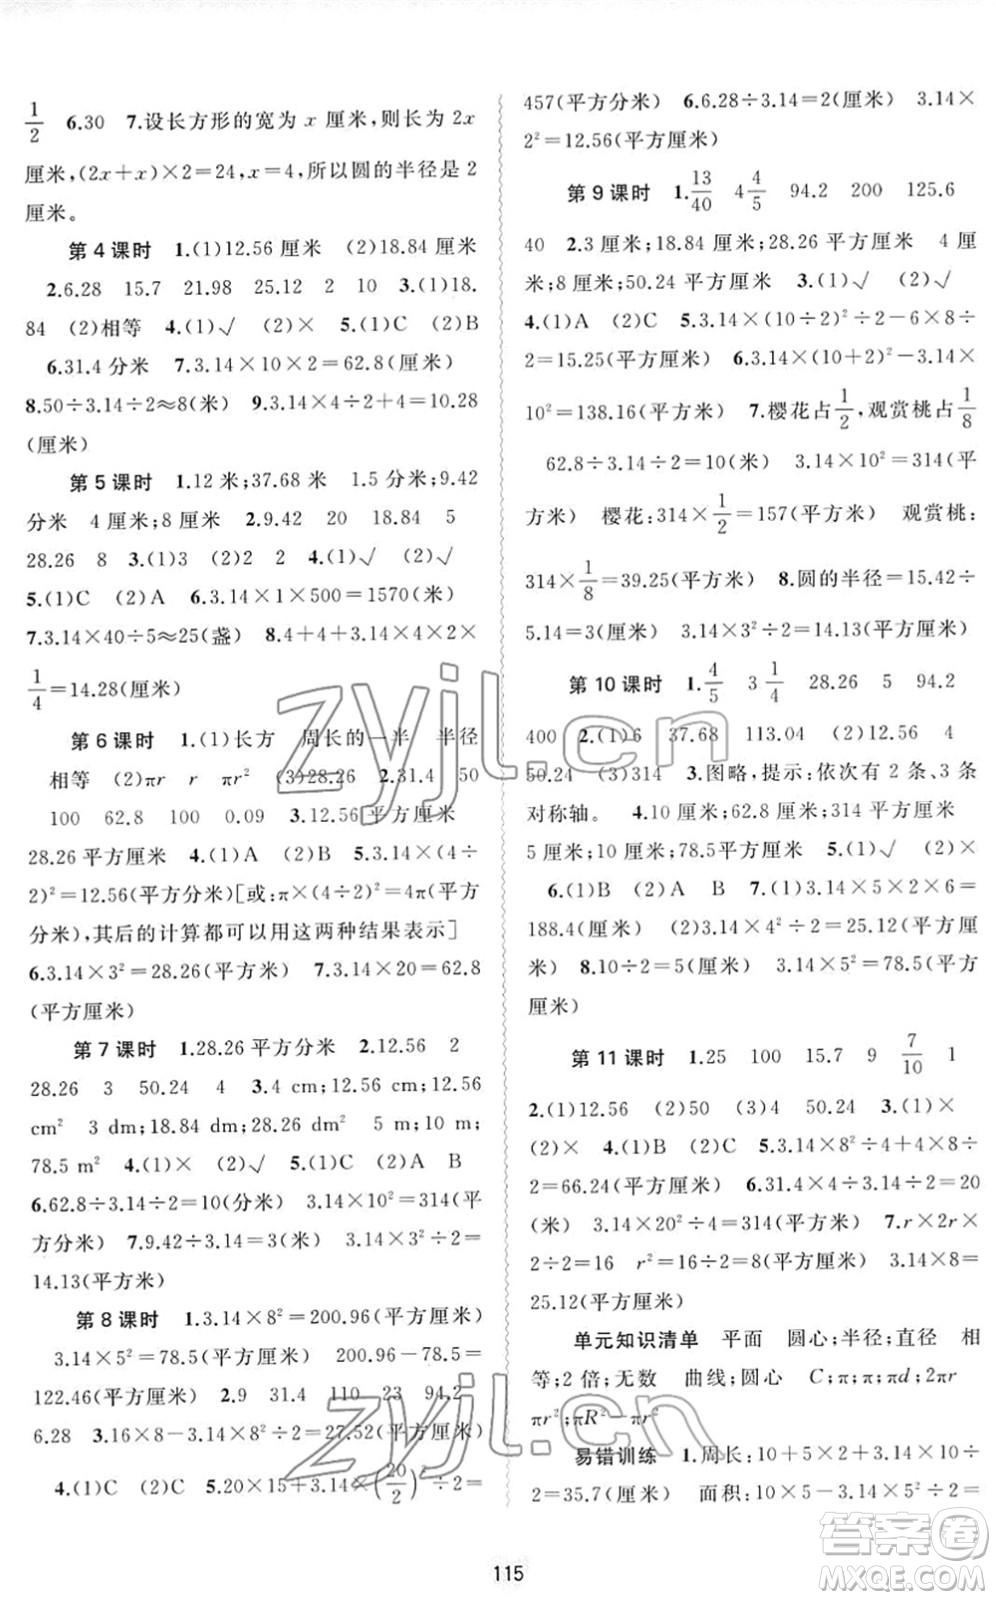 1/2　6.30　7.设长方形的宽为 x 厘米,则长为 2x
厘米,(2x+x)×2=24,x=4,所以圆的半径是 2
厘米。
第 4 课时　1.(1)12.56 厘米　(2)18.84 厘米
2.6.28　15.7　21.98　25.12　2　10　3.(1)18.
84　(2)相等　4.(1)√　(2)×　5.(1)C　(2)B
6.31.4 分米　7.3.14×10×2=62.8(厘米)
8.50÷3.14÷2≈8(米)　9.3.14×4÷2+4=10.28
(厘米)
第 5 课时　1.12 米;37.68 米　1.5 分米;9.42
分米　4 厘米;8 厘米　2.9.42　20　18.84　5
28.26　8　3.(1)3　(2)2　2　4.(1)√　(2)√
5.(1)C　(2)A　6.3.14×1×500=1570(米)
7.3.14×40÷5≈25(盏)　8.4+4+3.14×4×2×
1/4=14.28(厘米)
第 6 课时　1.(1)长方　周长的一半　半径
相等　(2)πr　r　πr²　(3)28.26　2.31.4　50
100　62.8　100　0.09　3.12.56 平方厘米
28.26 平方厘米　4.(1)A　(2)B　5.3.14×(4÷
2)²=12.56(平方分米)[或:π×(4÷2)²=4π(平方
分米),其后的计算都可以用这两种结果表示]
6.3.14×3²=28.26(平方米)　7.3.14×20=62.8
(平方厘米)
第 7 课时　1.28.26 平方分米　2.12.56　2
28.26　3　50.24　4　3.4 cm;12.56 cm;12.56
cm²　3 dm;18.84 dm;28.26 dm²　5 m;10 m;
78.5 m²　4.(1)×　(2)√　5.(1)C　(2)A　B
6.62.8÷3.14÷2=10(分米)　3.14×10²=314(平
方分米)　7.9.42÷3.14=3(米)　3.14×3²÷2=
14.13(平方米)
第 8 课时　1.3.14×8²=200.96(平方厘米)
3.14×5²=78.5(平方厘米)　200.96-78.5=
122.46(平方厘米)　2.9　31.4　110　23　94.2
6.28　3.16×8-3.14×8²÷2=27.52(平方厘米)
4.(1)C　(2)C　5.20×15+3.14×(20/2)²÷2=
457(平方分米)　6.6.28÷3.14=2(厘米)　3.14×
2²=12.56(平方厘米)
第 9 课时　1.13/40　4 4/5　94.2　200　125.6
40　2.3 厘米;18.84 厘米;28.26 平方厘米　4 厘
米;8 厘米;50.24 平方厘米　3.(1)√　(2)√
4.(1)A　(2)C　5.3.14×(10÷2)²÷2-6×8÷
2=15.25(平方厘米)　6.3.14×(10+2)²-3.14×
10²=138.16(平方米)　7.樱花占1/2,观赏桃占1/8
62.8÷3.14÷2=10(米)　3.14×10²=314(平
方米)　樱花:314×1/2=157(平方米)　观赏桃:
314×1/8=39.25(平方米)　8.圆的半径=15.42÷
5.14=3(厘米)　3.14×3²÷2=14.13(平方厘米)
第 10 课时　1.4/5　3 1/4　28.26　5　94.2
400　2.(1)6　37.68　113.04　(2)12.56　4
50.24　(3)314　3.图略,提示:依次有 2 条、3 条
对称轴。　4.10 厘米;62.8 厘米;314 平方厘米
5 厘米;10 厘米;78.5 平方厘米　5.(1)√　(2)×
6.(1)B　(2)A　B　7.(1)3.14×5×2×6=
188.4(厘米)　(2)3.14×4²÷2=25.12(平方厘
米)　8.10÷2=5(厘米)　3.14×5²=78.5(平方
厘米)
第 11 课时　1.25　100　15.7　9　7/10　1
2.(1)12.56　(2)50　(3)4　50.24　3.(1)×
(2)×　4.(1)B　(2)C　5.3.14×8²÷4+4×8÷
2=66.24(平方厘米)　6.31.4×4÷3.14÷2=20
(米)　3.14×20²÷4=314(平方米)　7.r×2r×
2÷2=16　r²=16÷2=8(平方厘米)　3.14×8=
25.12(平方厘米)
单元知识清单　平面　圆心;半径;直径　相
等;2 倍;无数　曲线;圆心　C;π;π;πd;2πr
πr²;πR²-πr²
易错训练　1.周长:10+5×2+3.14×10÷
2=35.7(厘米)　面积:10×5-3.14×5²÷2=
115
zyjl.cn
zyjl.cn
答案卷
MXQE.COM